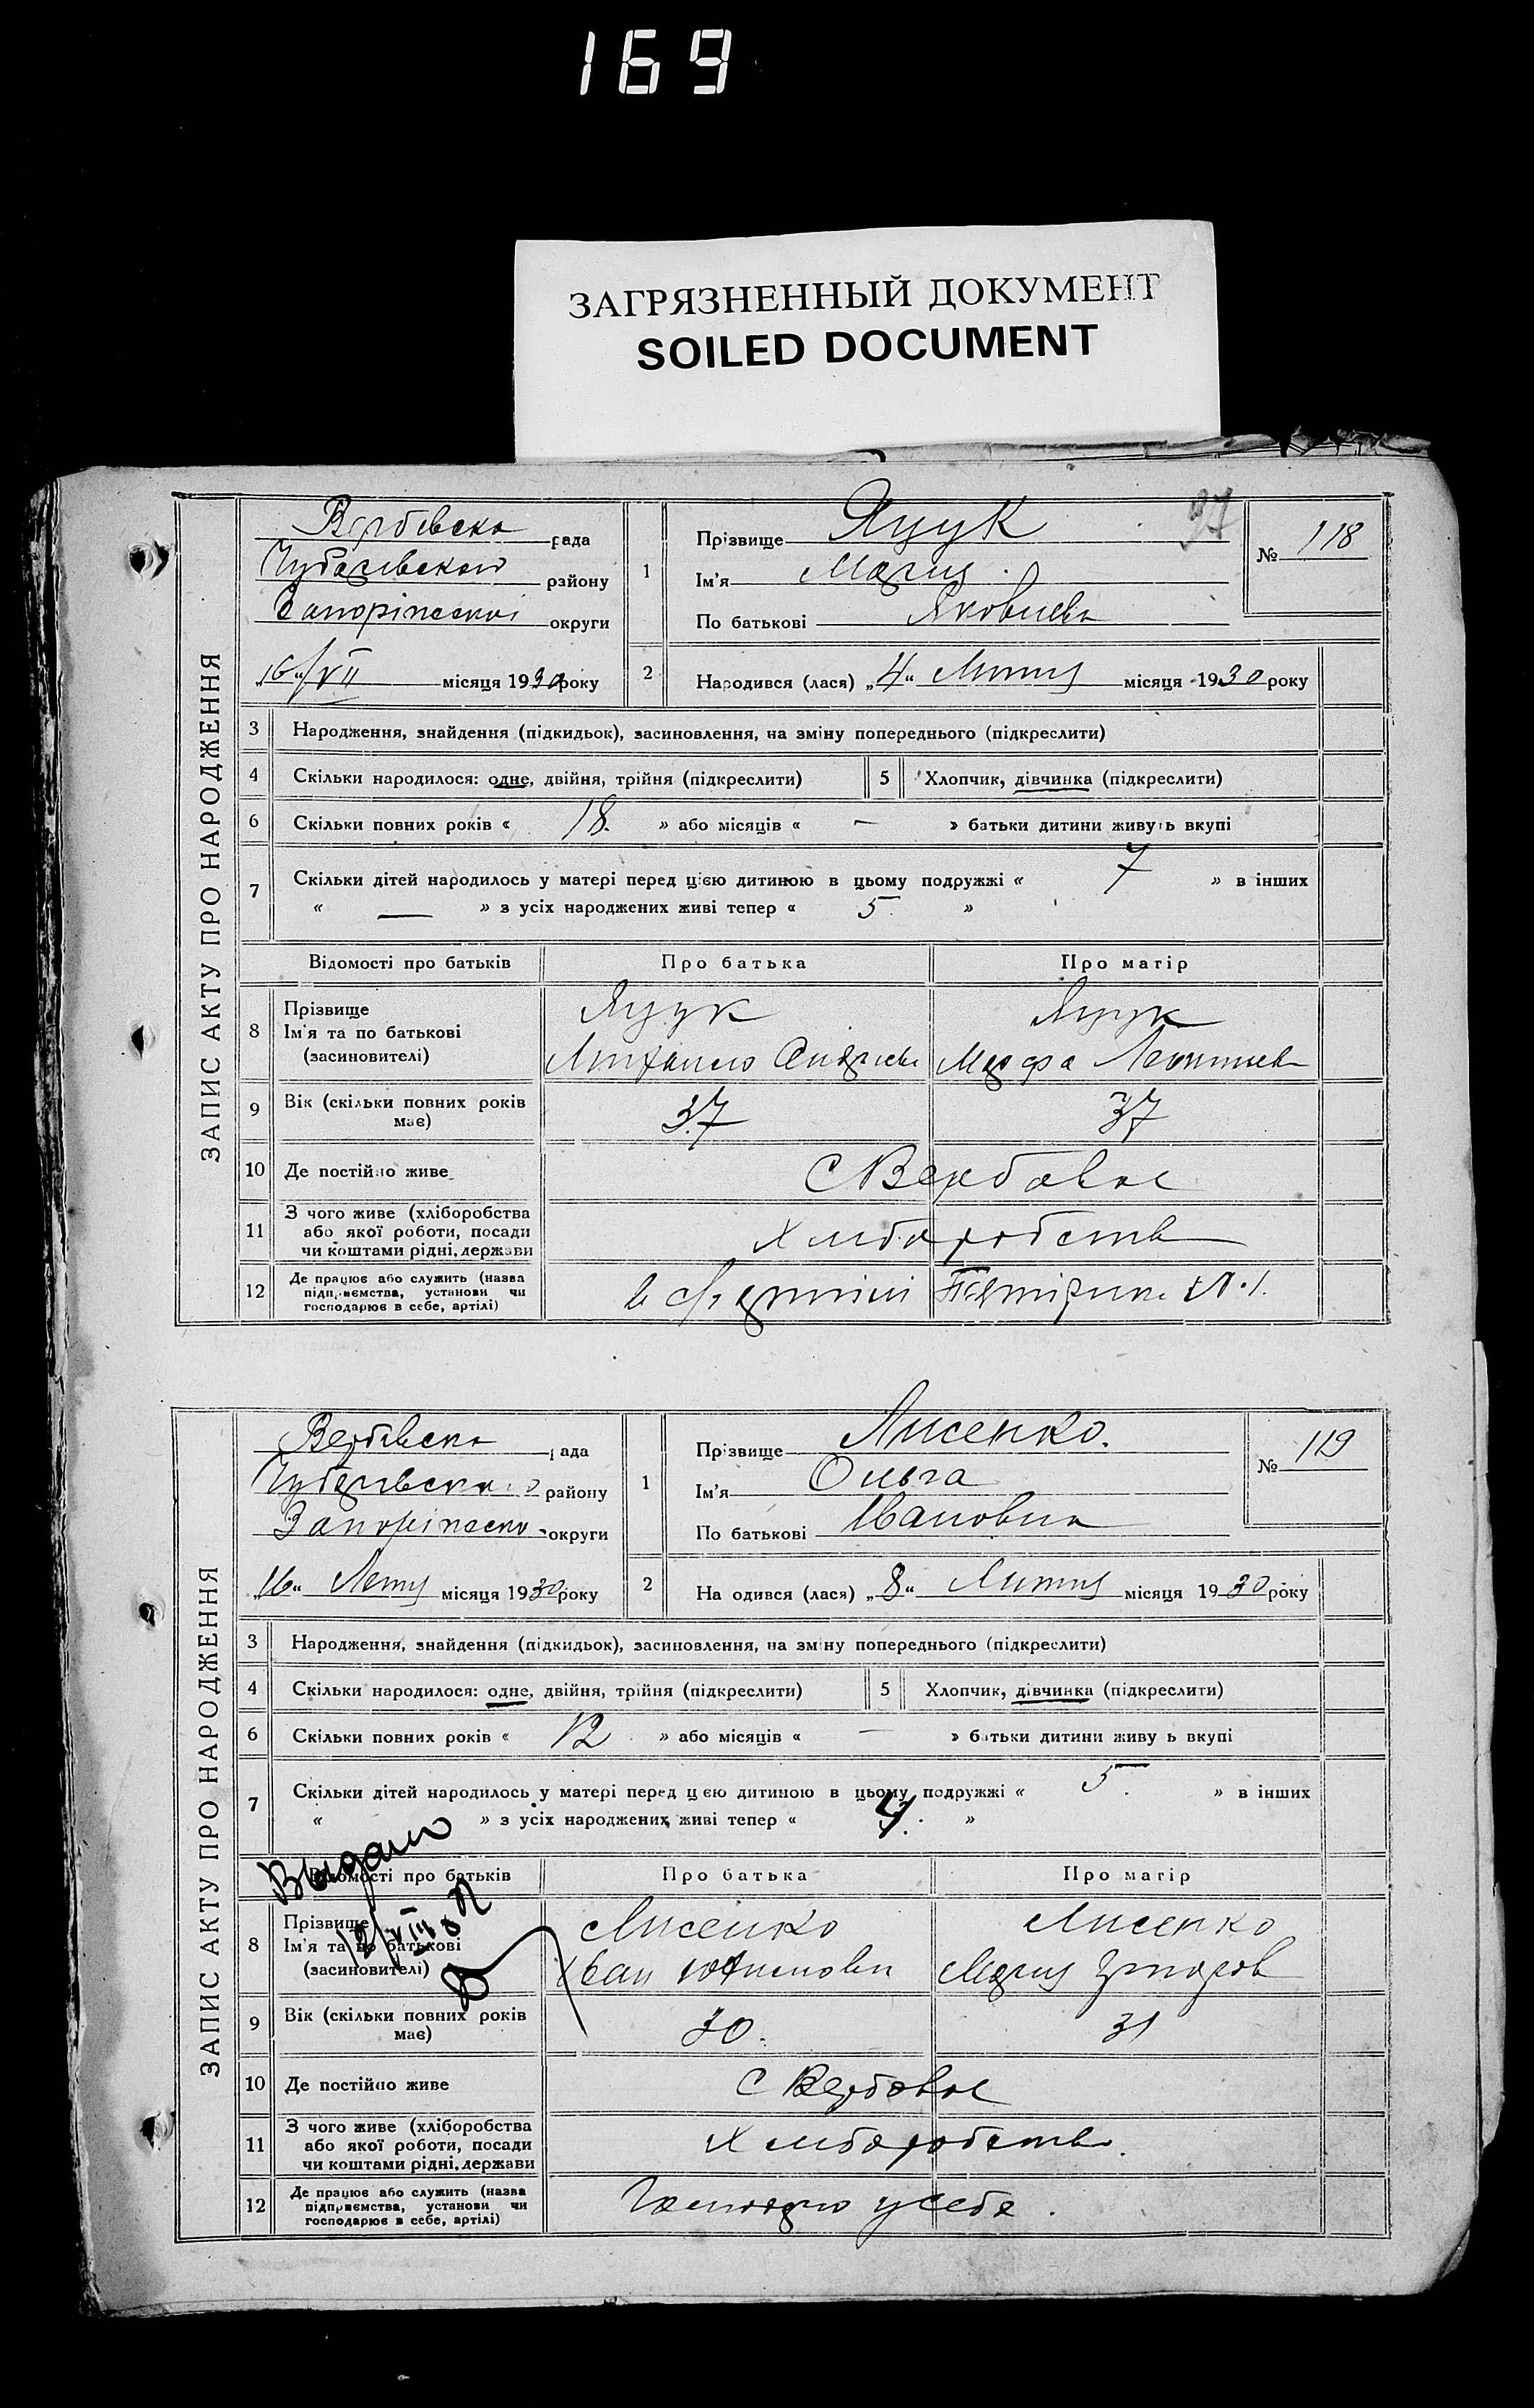 169
ЗАГРЯЗНЕННЫЙ ДОКУМЕНТ
SOILED DOCUMENT
97
ЗАПИС АКТУ ПРО НАРОДЖЕННЯ
Вербівська рада
Чубарівськой району
Запоріжської округи
„16“/VII місяця 1930 року
1 Прізвище Яцук
Ім'я Мария
По батькові Яковлевн
№ 118
2 Народився (лася) „4“ Липня місяця 1930 року
3 Народження, знайдення (підкидьок), засиновлення, на зміну попереднього (підкреслити)
4 Скільки народилося: одне, двійня, трійня (підкреслити) 5 Хлопчик, дівчинка (підкреслити)
6 Скільки повних років « 18 » або місяців « — » батьки дитини живуть вкупі
7 Скільки дітей народилось у матері перед цією дитиною в цьому подружжі « 7 » в інших
« — » з усіх народжених живі тепер « 5 »
Відомості про батьків Про батька Про матір
8 Прізвище
Ім'я та по батькові
(засиновителі)
Яцук Яцук
Андриев Марфа Леонтиев
9 Вік (скільки повних років має) 37 37
10 Де постійно живе С Вербовое
11 З чого живе (хліборобства
або якої роботи, посади
чи коштами рідні, держави
Хліборобств
12 Де працює або служить (назва
підприємства, установи чи
господарює в себе, артілі)
в с/г артілі
ЗАПИС АКТУ ПРО НАРОДЖЕННЯ
Вербівська рада
Чубарівського району
Запоріжсько округи
„16“ Липня місяця 1930 року
1 Прізвище Лисенко.
Ім'я Ольга
По батькові Ивановна
№ 119
2 Народився (лася) „8“ Липня місяця 1930 року
3 Народження, знайдення (підкидьок), засиновлення, на зміну попереднього (підкреслити)
4 Скільки народилося: одне, двійня, трійня (підкреслити) 5 Хлопчик, дівчинка (підкреслити)
6 Скільки повних років « 12 » або місяців « — » батьки дитини живуть вкупі
7 Скільки дітей народилось у матері перед цією дитиною в цьому подружжі « 5 » в інших
« » з усіх народжених живі тепер « 4. »
Выдано
Відомості про батьків Про батька Про матір
8 Прізвище
Ім'я та по батькові
(засиновителі)
Лисенко Лисенко
Иван Мария
9 Вік (скільки повних років має) 30. 31
10 Де постійно живе С Вербовое
11 З чого живе (хліборобства
або якої роботи, посади
чи коштами рідні, держави
Хліборобств.
12 Де працює або служить (назва
підприємства, установи чи
господарює в себе, артілі)
у себе.